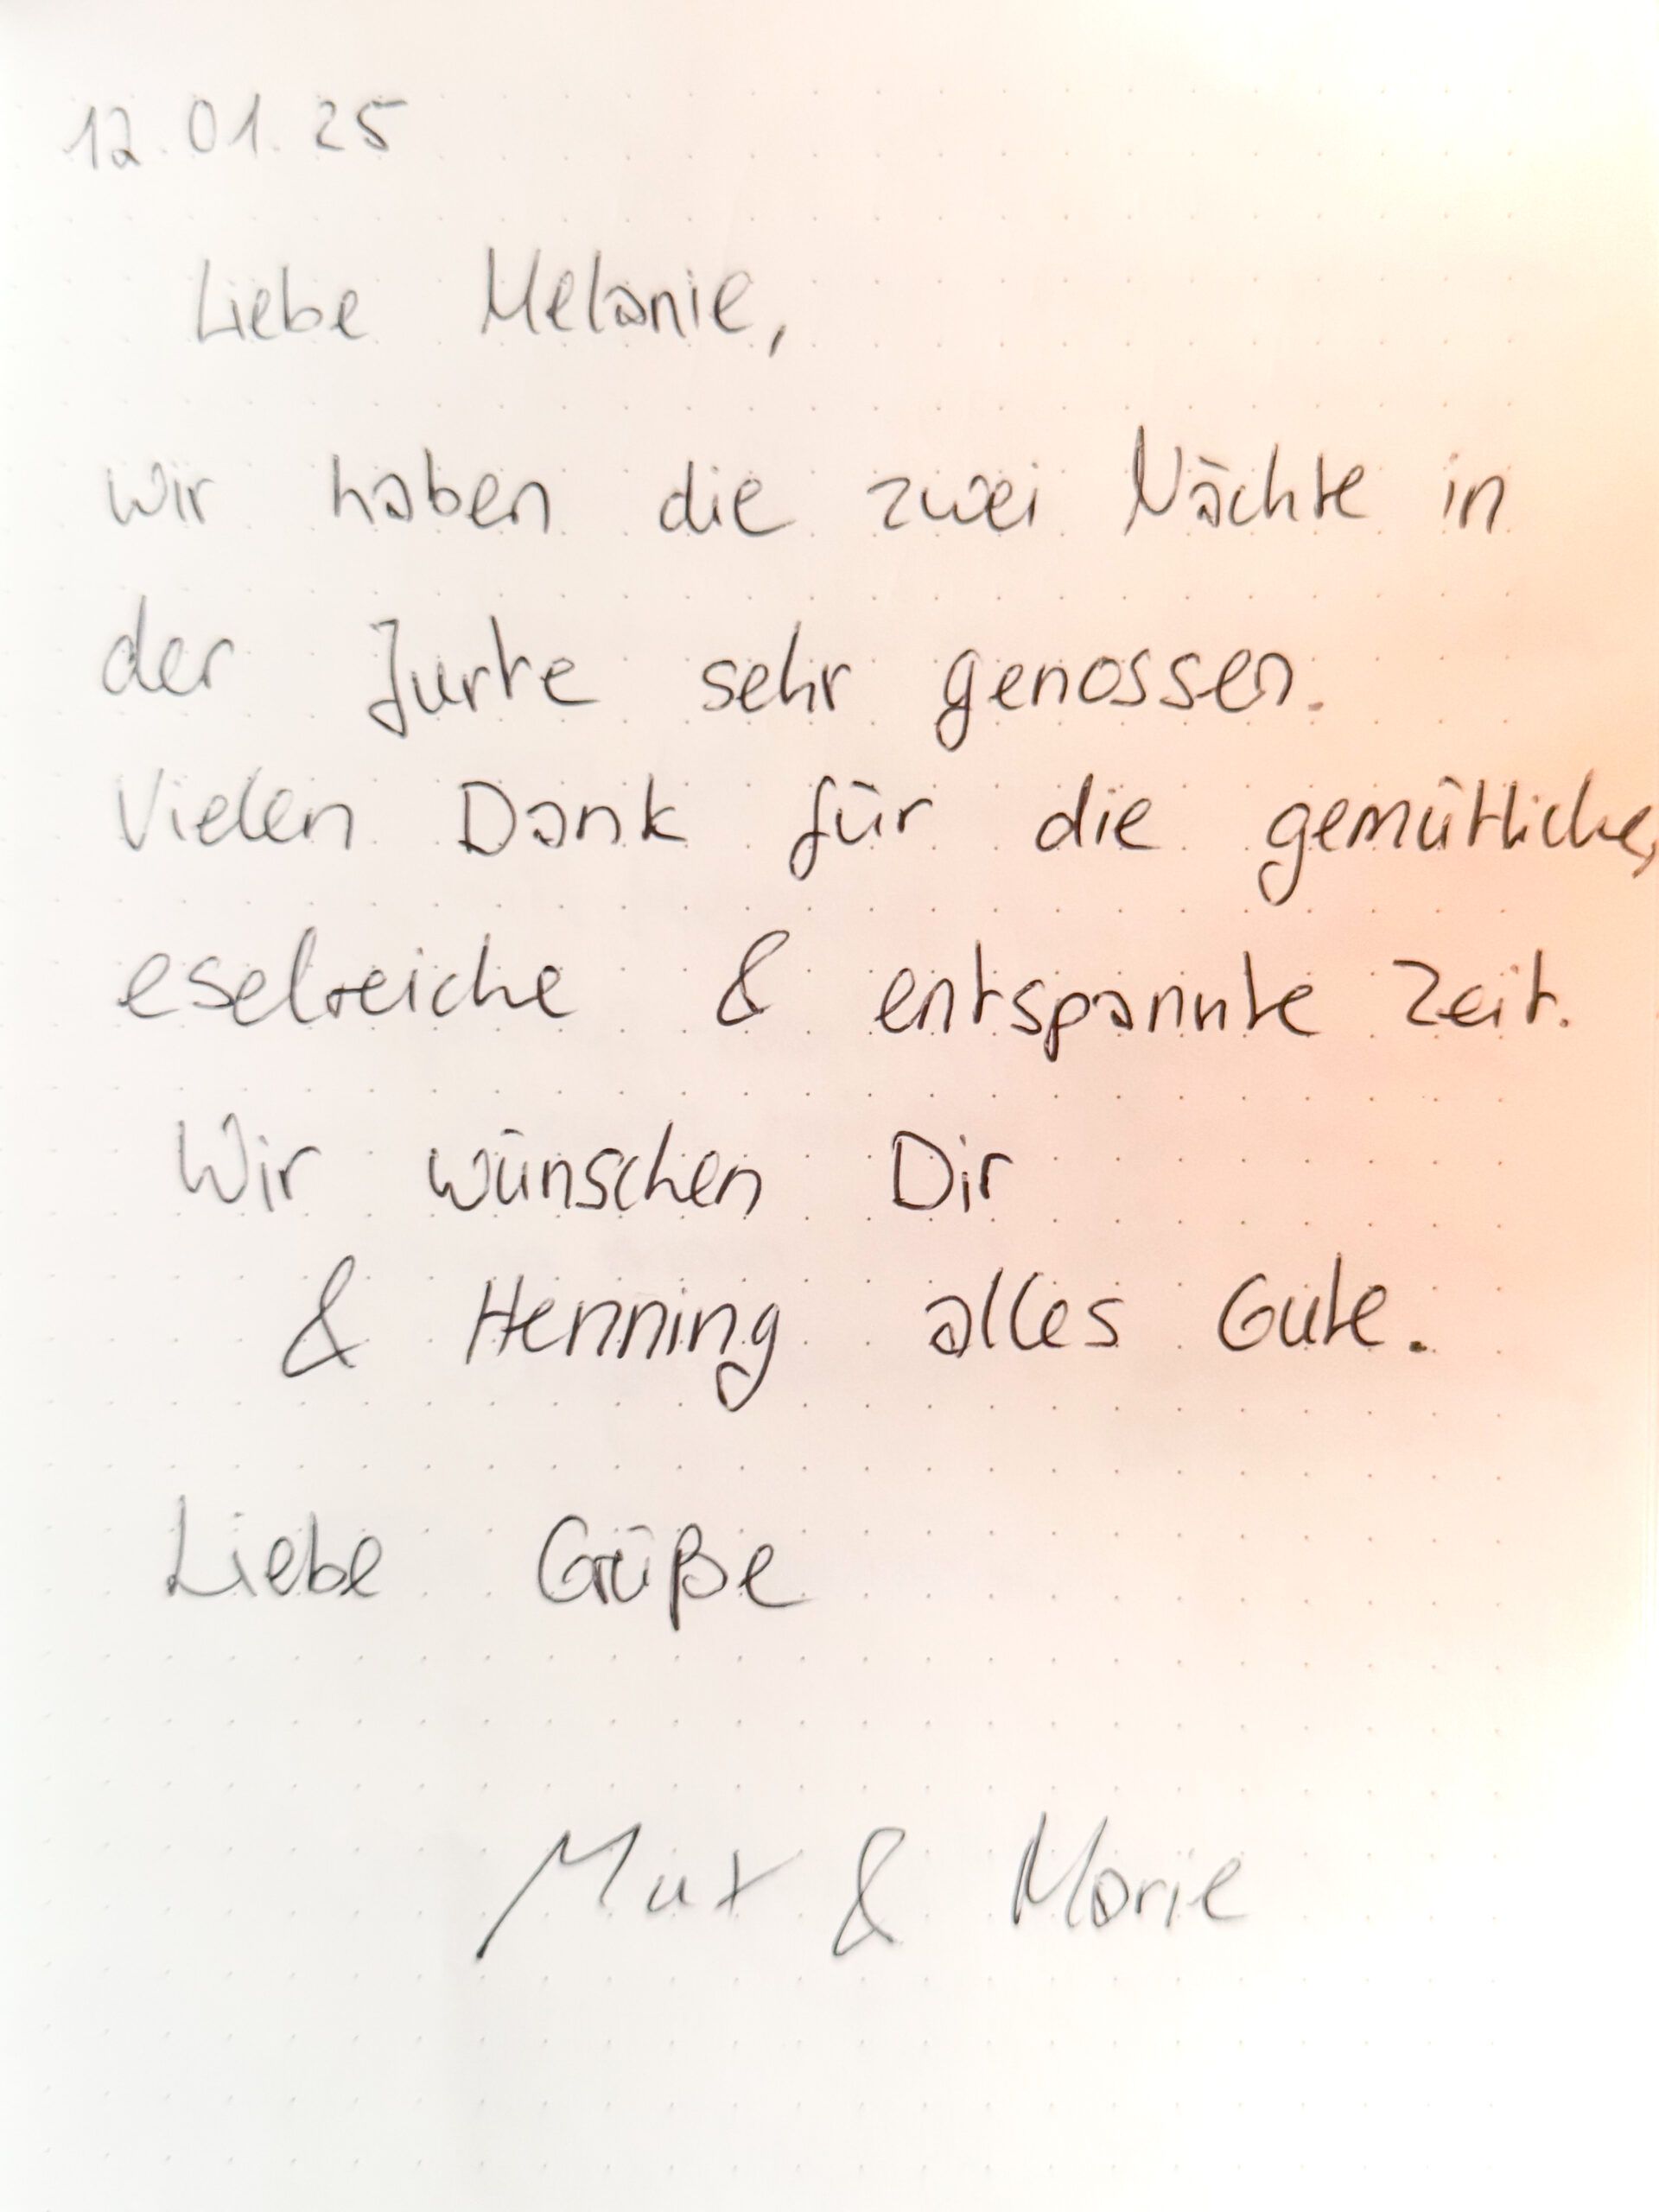 12.01.25
Liebe Melanie,
wir haben die zwei Nächte in
der Jurte sehr genossen.
Vielen Dank für die gemütliche,
eselreiche & entspannte Zeit.
Wir wünschen Dir
& Henning alles Gute.
Liebe Grüße
Max & Marie